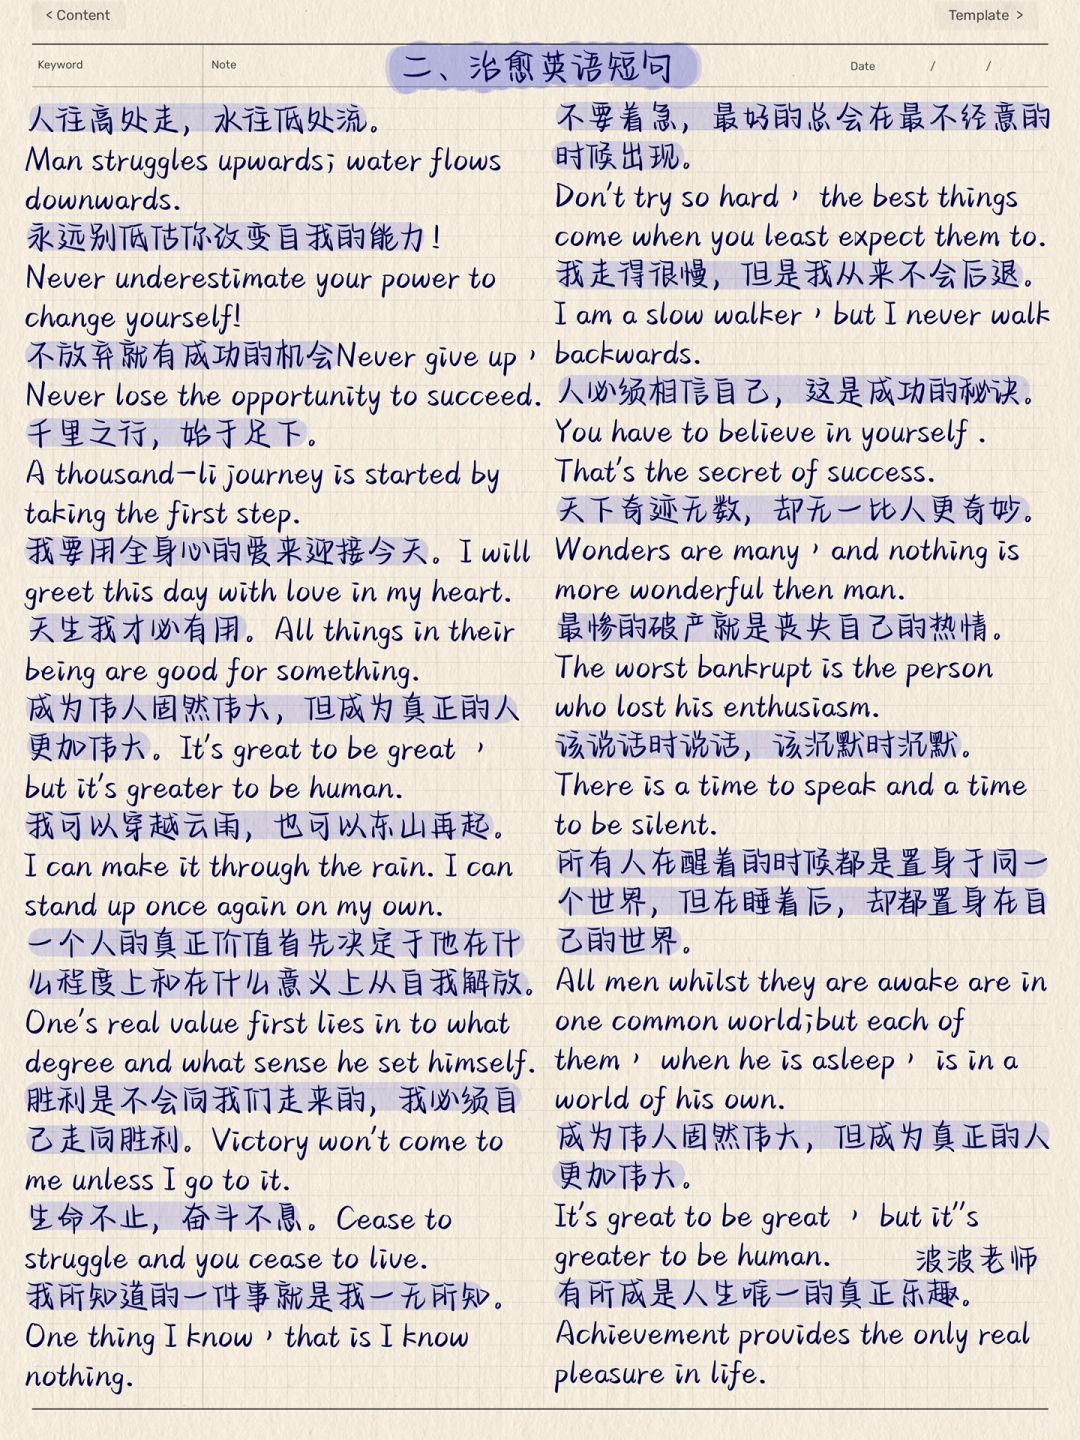 < Content
Template >
Keyword
Note
二、治愈英语短句
Date / /
人往高处走，水往低处流。
Man struggles upwards; water flows
downwards.
永远别低估你改变自我的能力！
Never underestimate your power to
change yourself!
不放弃就有成功的机会Never give up，
Never lose the opportunity to succeed.
千里之行，始于足下。
A thousand-li journey is started by
taking the first step.
我要用全身心的爱来迎接今天。I will
greet this day with love in my heart.
天生我才必有用。All things in their
being are good for something.
成为伟人固然伟大，但成为真正的人
更加伟大。It's great to be great ，
but it's greater to be human.
我可以穿越云雨，也可以东山再起。
I can make it through the rain. I can
stand up once again on my own.
一个人的真正价值首先决定于他在什
么程度上和在什么意义上从自我解放。
One's real value first lies in to what
degree and what sense he set himself.
胜利是不会向我们走来的，我必须自
己走向胜利。Victory won't come to
me unless I go to it.
生命不止，奋斗不息。Cease to
struggle and you cease to live.
我所知道的一件事就是我一无所知。
One thing I know，that is I know
nothing.
不要着急，最好的总会在最不经意的
时候出现。
Don't try so hard， the best things
come when you least expect them to.
我走得很慢，但是我从来不会后退。
I am a slow walker，but I never walk
backwards.
人必须相信自己，这是成功的秘诀。
You have to believe in yourself .
That's the secret of success.
天下奇迹无数，却无一比人更奇妙。
Wonders are many，and nothing is
more wonderful then man.
最惨的破产就是丧失自己的热情。
The worst bankrupt is the person
who lost his enthusiasm.
该说话时说话，该沉默时沉默。
There is a time to speak and a time
to be silent.
所有人在醒着的时候都是置身于同一
个世界，但在睡着后，却都置身在自
己的世界。
All men whilst they are awake are in
one common world;but each of
them， when he is asleep， is in a
world of his own.
成为伟人固然伟大，但成为真正的人
更加伟大。
It's great to be great ， but it''s
greater to be human.
波波老师
有所成是人生唯一的真正乐趣。
Achievement provides the only real
pleasure in life.